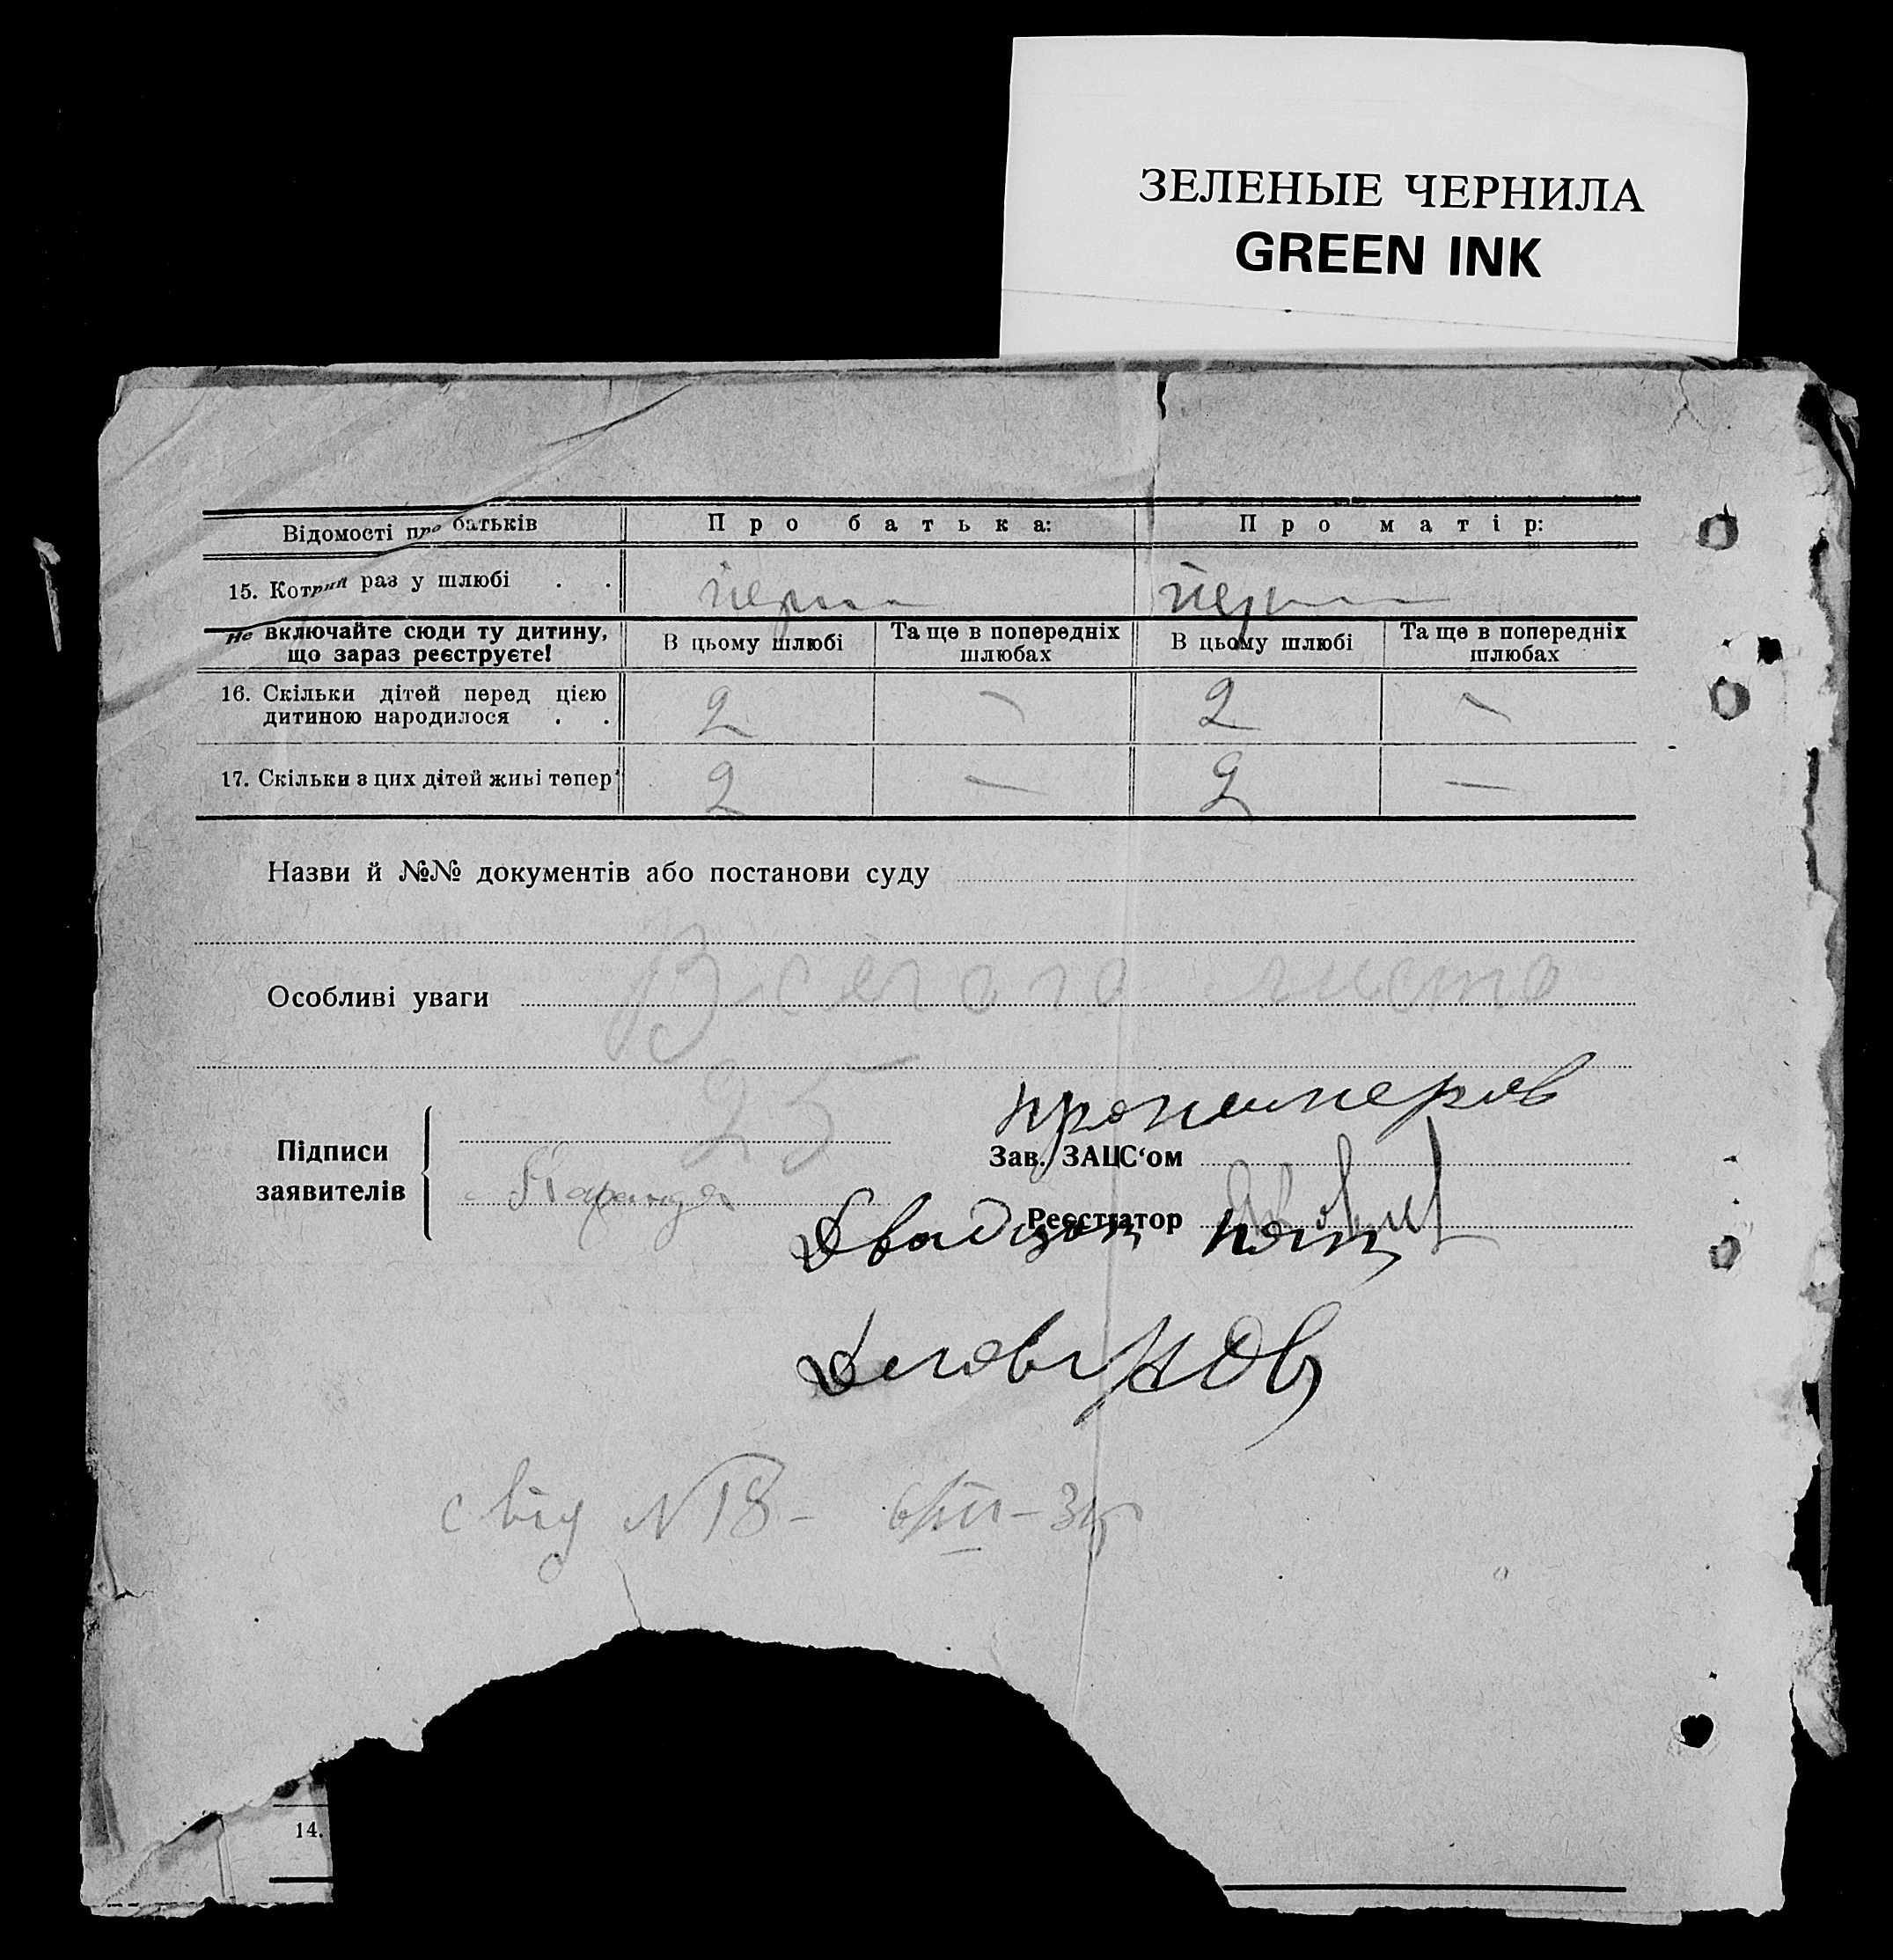 ЗЕЛЕНЫЕ ЧЕРНИЛА
GREEN INK
Відомості про батьків Про батька: Про матір:
15. Котрий раз у шлюбі . .
Не включайте сюди ту дитину, що зараз реєструєте!
В цьому шлюбі Та ще в попередніх шлюбах В цьому шлюбі Та ще в попередніх шлюбах
16. Скільки дітей перед цією дитиною народилося . . 2 — 2 —
17. Скільки з цих дітей живі тепер 2 — 2 —
Назви й №№ документів або постанови суду
Особливі уваги
Всього листо
25
пронумеров
Підписи заявителів
Зав. ЗАЦС‘ом
Реєстратор
Двадцат пять
14.